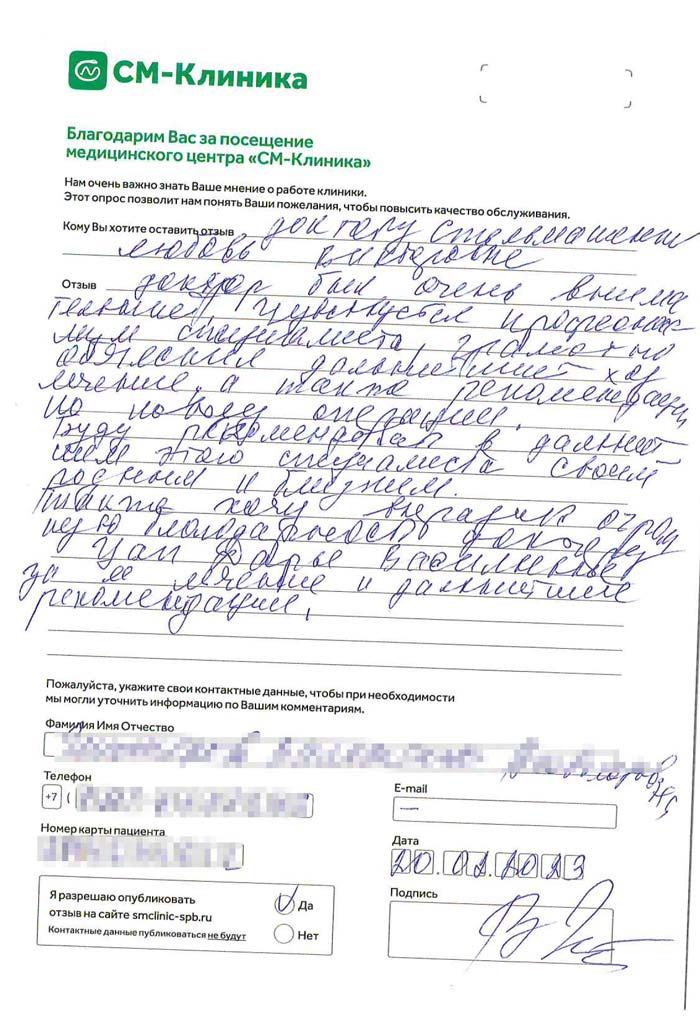 СМ-Клиника
Благодарим Вас за посещение
медицинского центра «СМ-Клиника»
Нам очень важно знать Ваше мнение о работе клиники.
Этот опрос позволит нам понять Ваши пожелания, чтобы повысить качество обслуживания.
Кому Вы хотите оставить отзыв доктору Стельмашенко
Любовь Викторовне
Отзыв доктор был очень внима
тельные, чувствуется професион
изм специалиста, грамотно
объяснил дальнейший ход
лечение, а также рекомендации
по поводу операции.
Буду рекомендовать в дальней
шем этого специалиста своим
родным и близким.
Также хочу выразить огром
ную благодарность доктору
Цай Дарье Васильевне
за ее лечение и дальнейшие
рекомендации.
Пожалуйста, укажите свои контактные данные, чтобы при необходимости
мы могли уточнить информацию по Вашим комментариям.
Фамилия Имя Отчество
Телефон
E-mail
+7 (
—
Номер карты пациента
Дата
20.02.2023
Я разрешаю опубликовать
отзыв на сайте smclinic-spb.ru
Контактные данные публиковаться не будут
Да
Нет
Подпись